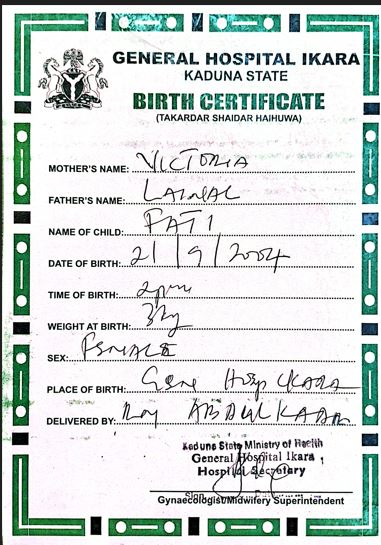 GENERAL HOSPITAL IKARA
KADUNA STATE
BIRTH CERTIFICATE
(TAKARDAR SHAIDAR HAIHUWA)
MOTHER'S NAME: VICTORIA
FATHER'S NAME:
NAME OF CHILD: FATI
DATE OF BIRTH: 21/9/2004
TIME OF BIRTH: 2pm
WEIGHT AT BIRTH: 3kg
SEX: FEMALE
PLACE OF BIRTH: Gene Hosp IKARA
DELIVERED BY: ABDULKADAR
Kaduna State Ministry of Health
General Hospital Ikara
Hospital Secretary
Sign
Gynaecologist/Midwifery Superintendent